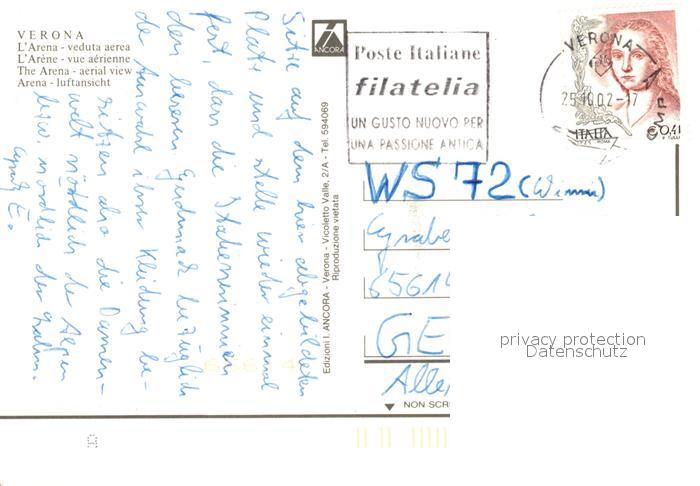 VERONA
L'Arena - veduta aerea
L'Arène - vue aérienne
The Arena - aerial view
Arena - luftansicht
ANCORA
Sitze auf dem hier abgebildeten
Platz und stelle wieder einmal
fest, dass die Italienerinnen
den besseren Geschmack bezüglich
der Auswahl ihrer Kleidung be-
sitzen als die Damen-
welt nördlich der Alpen
bzw. nördlich der
E.
Edizioni I. ANCORA - Verona - Vicoletto Valle, 2/A - Tel. 594069
Riproduzione vietata
Poste Italiane
filatelia
UN GUSTO NUOVO PER
UNA PASSIONE ANTICA
VERONA
25.10.02-17
ITALIA
€0,41
ROMA
WS 72 (Winni)
GE
NON SCR
privacy protection
Datenschutz